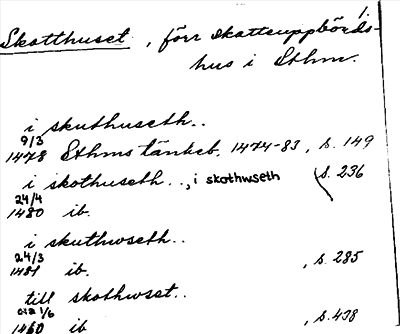 1.
Skotthuset, förr skatteuppbörds-
hus i Sthm.
i skuthuseth..
9/3
1478 Sthms tänkeb. 1474-83, s. 149
i skothuseth.., i skothwseth
24/4
1480 ib. , s. 236
i skuthwseth..
24/3
1481 ib. , s. 285
till skothwset..
1/6
1460 ib , s. 438